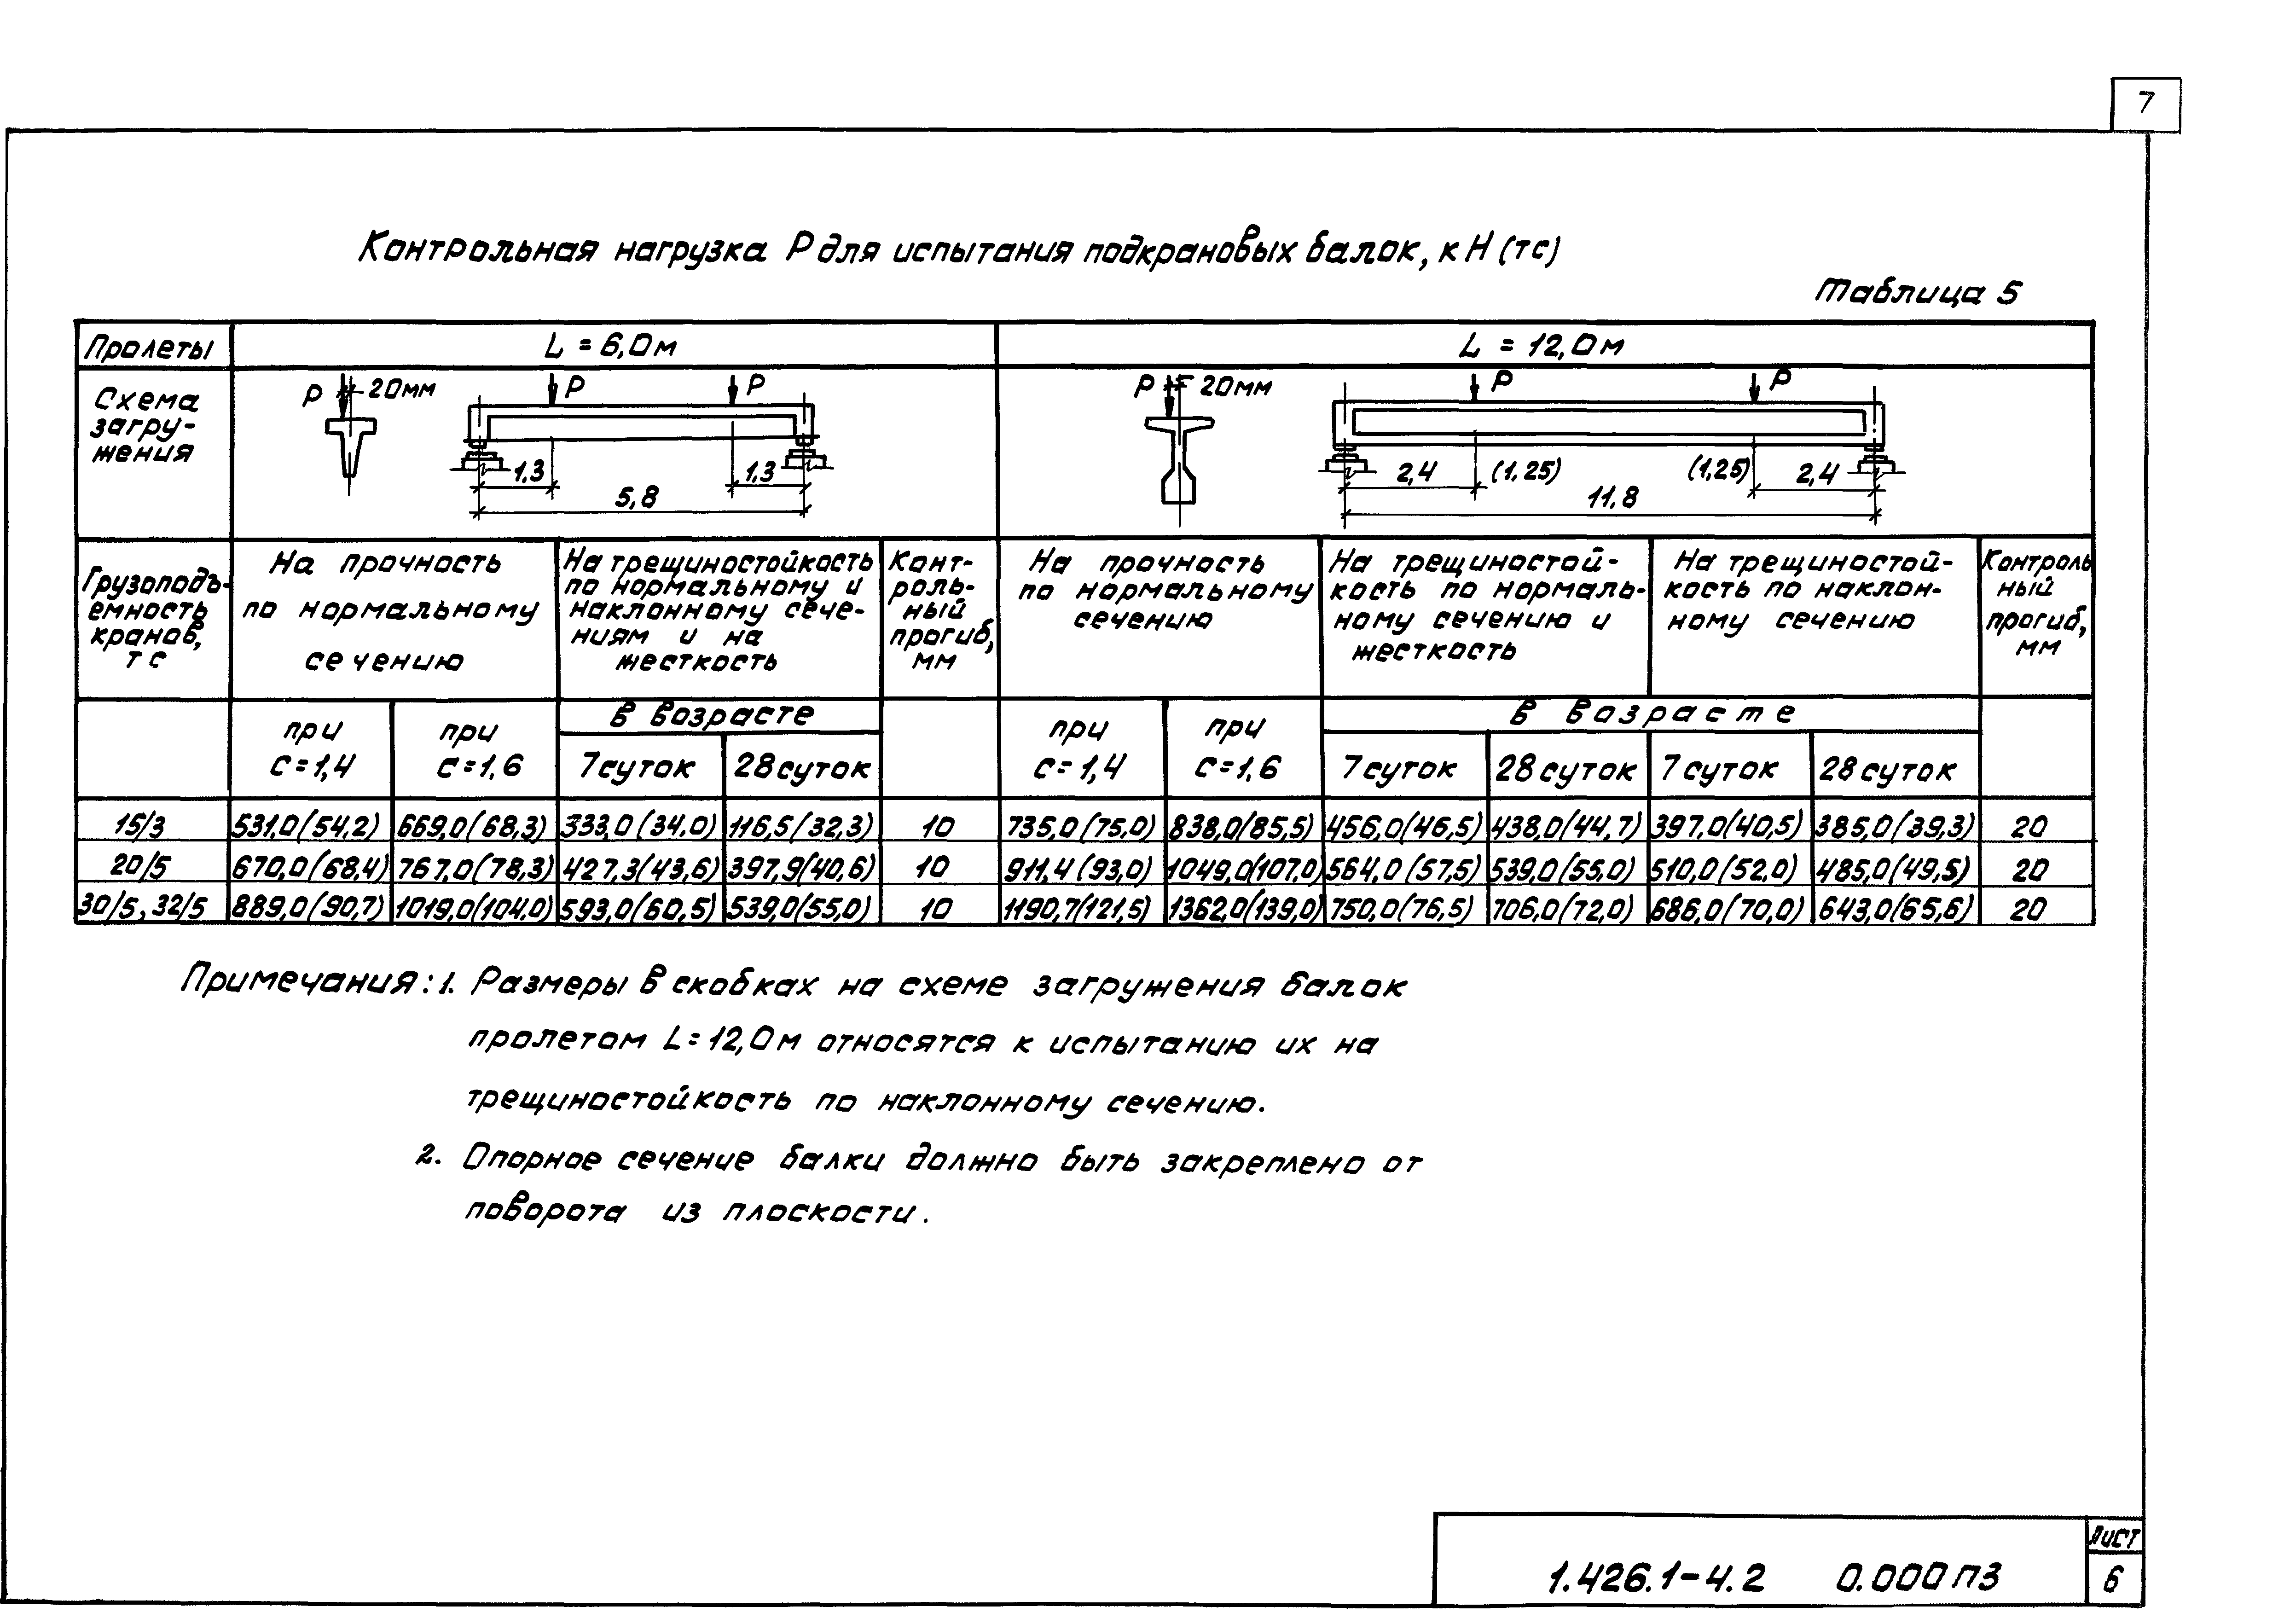 7
Контрольная нагрузка P для испытания подкрановых балок, кН (тс)
Таблица 5
Пролеты
L = 6,0м
L = 12,0м
Схема
загру-
жения
P 20мм
P P
1,3 1,3
5,8
P 20мм
P P
2,4 (1,25) (1,25) 2,4
11,8
Грузоподъ-
емность
кранов,
тс
На прочность
по нормальному
сечению
На трещиностойкость
по нормальному и
наклонному сече-
ниям и на
жесткость
Конт-
роль-
ный
прогиб,
мм
На прочность
по нормальному
сечению
На трещиностой-
кость по нормаль-
ному сечению и
жесткость
На трещиностой-
кость по наклон-
ному сечению
Контроль
ный
прогиб,
мм
при
c=1,4
при
c=1,6
в возрасте
7 суток 28 суток
при
c=1,4
при
c=1,6
в возрасте
7 суток 28 суток 7 суток 28 суток
15/3 531,0(54,2) 669,0(68,3) 333,0(34,0) 116,5/32,3) 10 735,0(75,0) 838,0(85,5) 456,0(46,5) 438,0(44,7) 397,0(40,5) 385,0(39,3) 20
20/5 670,0(68,4) 767,0(78,3) 427,3(43,6) 397,9(40,6) 10 911,4(93,0) 1049,0(107,0) 564,0(57,5) 539,0(55,0) 510,0(52,0) 485,0(49,5) 20
30/5, 32/5 889,0(90,7) 1019,0(104,0) 593,0(60,5) 539,0(55,0) 10 1190,7(121,5) 1362,0(139,0) 750,0(76,5) 706,0(72,0) 686,0(70,0) 643,0(65,6) 20
Примечания: 1. Размеры в скобках на схеме загружения балок
пролетом L=12,0м относятся к испытанию их на
трещиностойкость по наклонному сечению.
2. Опорное сечение балки должно быть закреплено от
поворота из плоскости.
1.426.1-4.2 0.000ПЗ
Лист
6